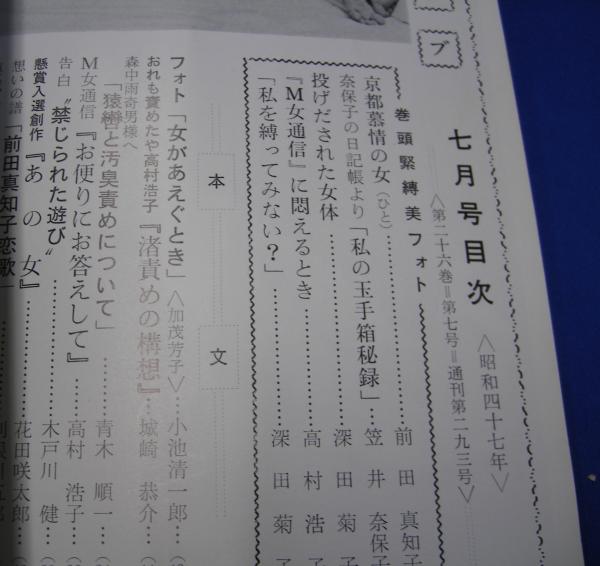 ブ
七月号目次
〈昭和四十七年〉
〈第二十六巻＝第七号＝通刊第二九三号〉
巻頭緊縛美フォト
京都慕情の女（ひと）……前田真知子
奈保子の日記帳より「私の玉手箱秘録」…笠井奈保子
投げだされた女体……深田菊子
『M女通信』に悶えるとき……高村浩子
「私を縛ってみない？」……深田菊子
本文
フォト「女があえぐとき」〈加茂芳子〉…小池清一郎…
おれも責めたや高村浩子『渚責めの構想』…城崎恭介…
森中雨奇男様へ
「猿轡と汚臭責めについて」……青木順一…
M女通信『お便りにお答えして』……高村浩子…
告白〝禁じられた遊び〟……木戸川健…
懸賞入選創作『あの女』……花田咲太郎…
想いの譜「前田真知子恋歌」